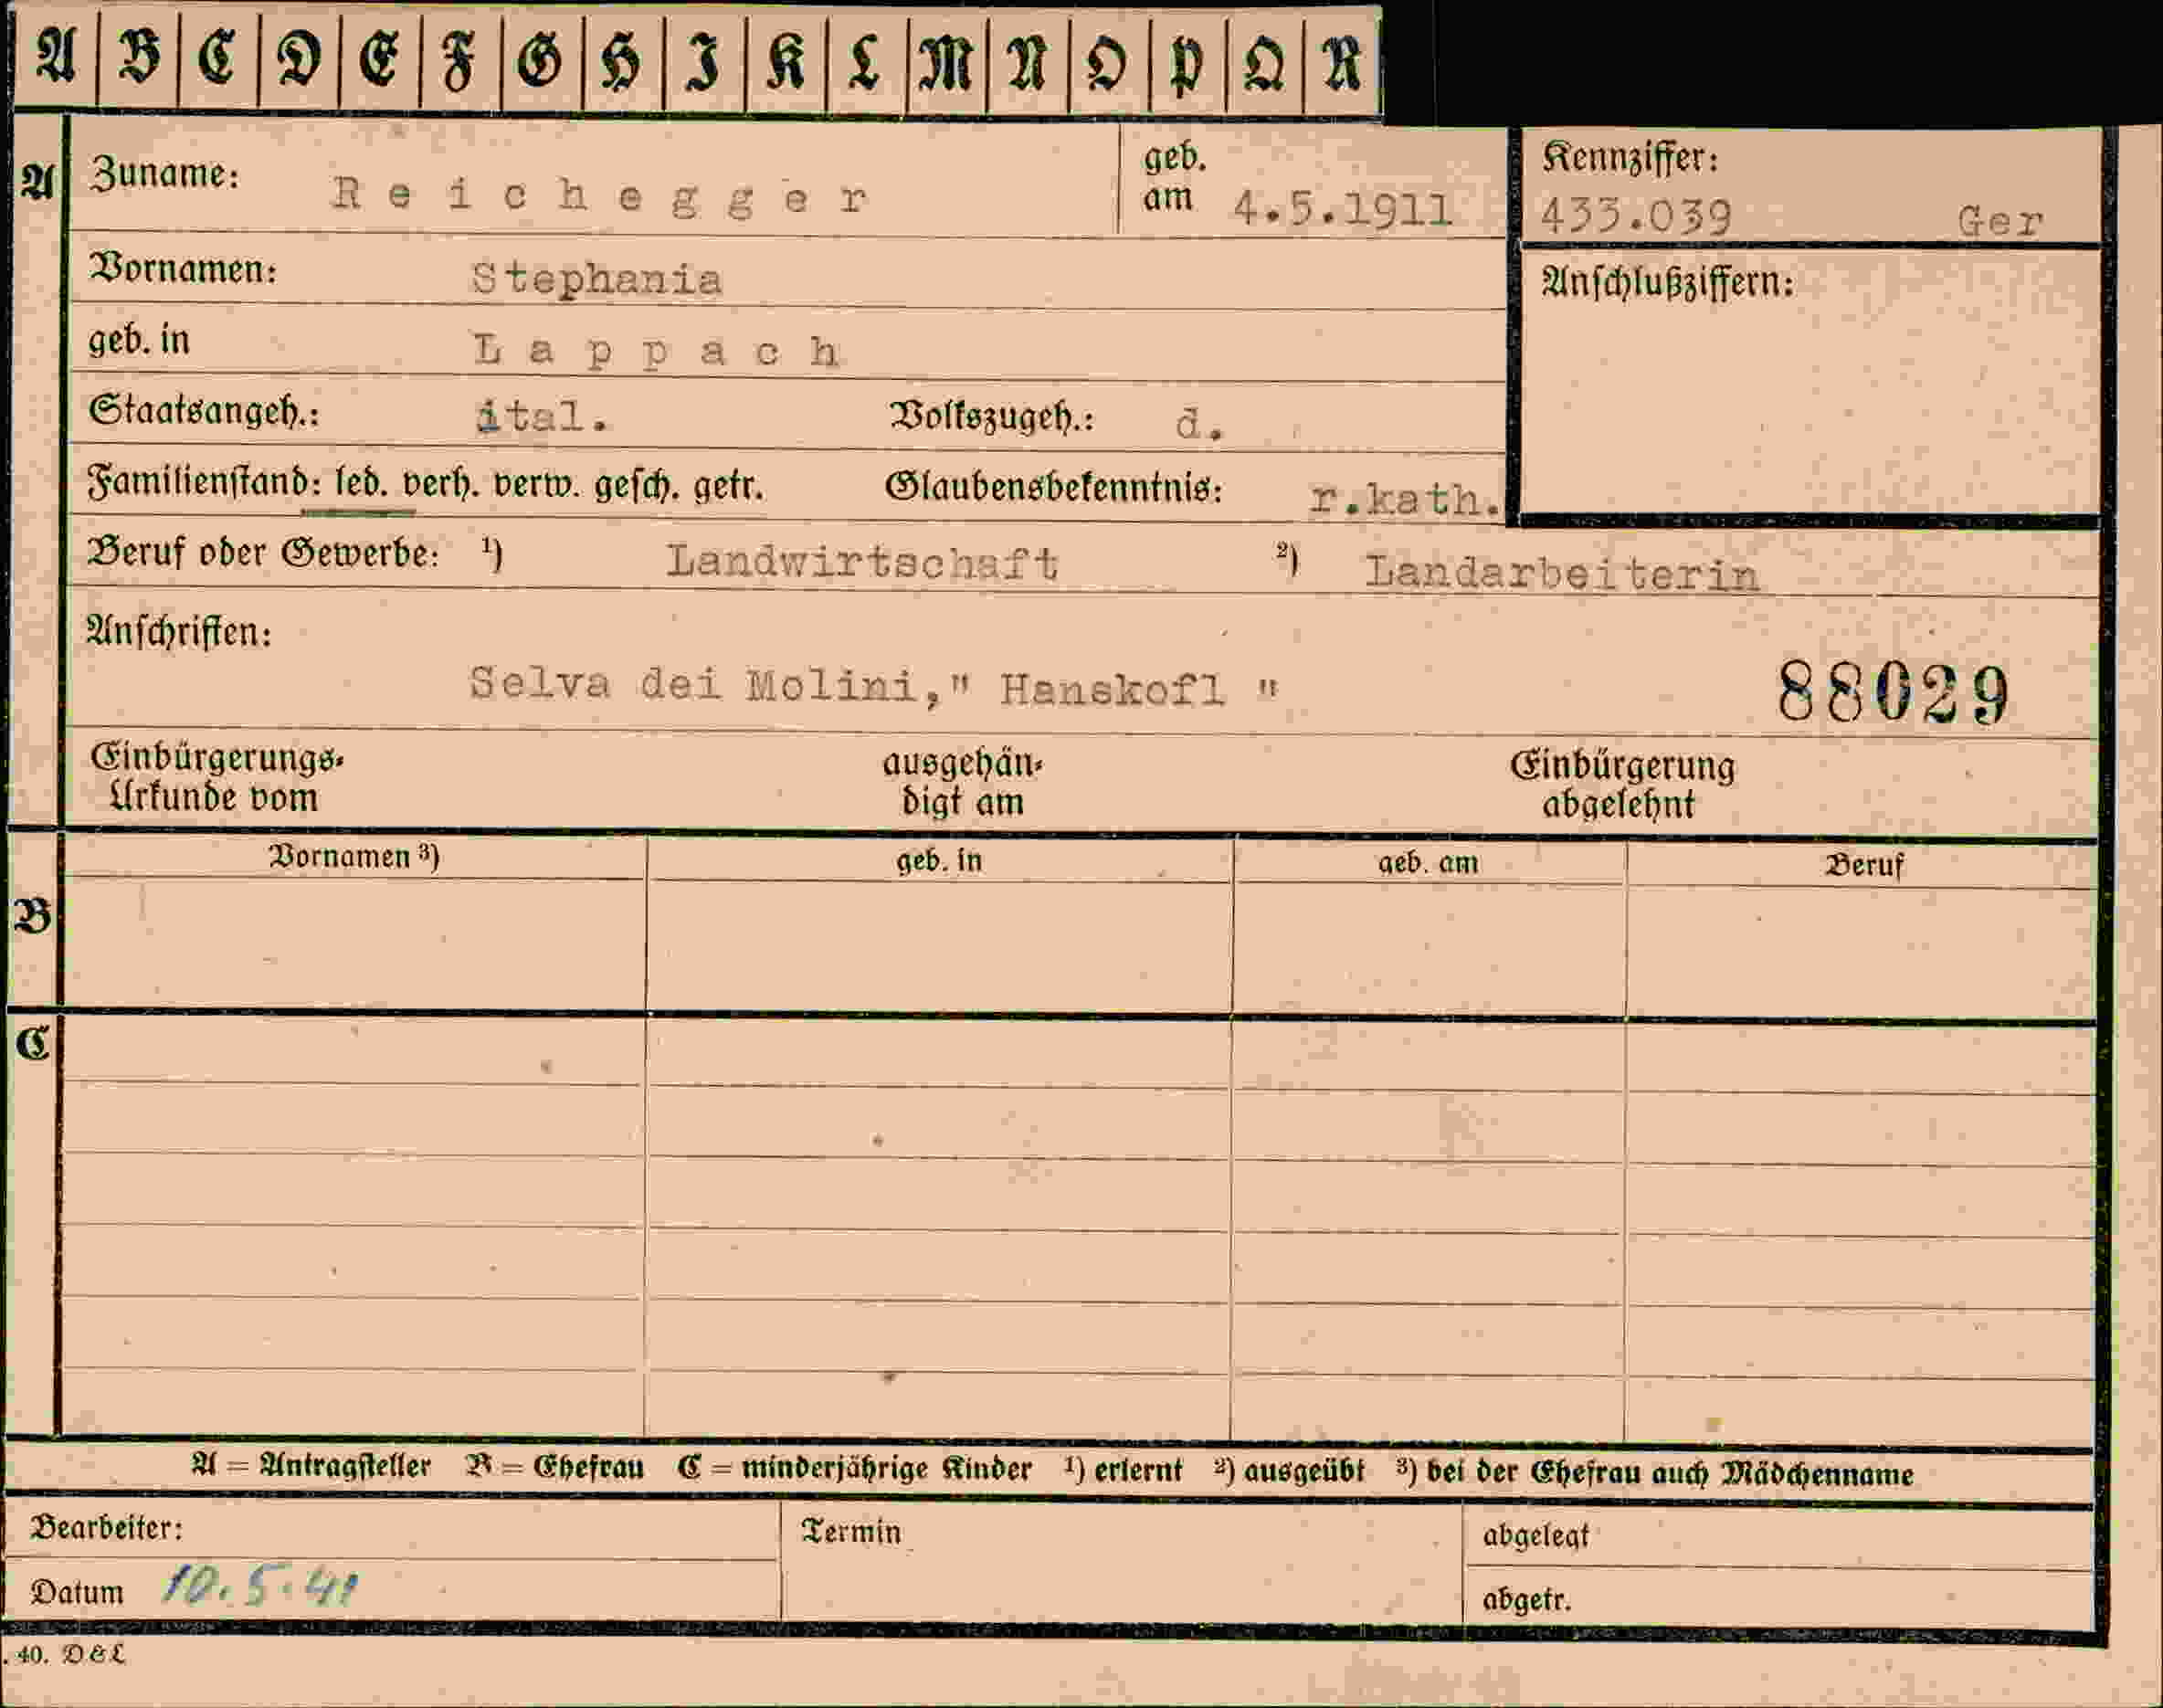 A B C D E F G H I K L M N O P Q R
A Zuname: Reichegger geb. am 4.5.1911 Kennziffer: 433.039 Ger
Vornamen: Stephania Anschlußziffern:
geb. in Lappach
Staatsangeh.: ital. Volkszugeh.: d.
Familienstand: led. verh. verw. gesch. getr. Glaubensbekenntnis: r.kath.
Beruf oder Gewerbe: ¹) Landwirtschaft ²) Landarbeiterin
Anschriften:
Selva dei Molini," Hanskofl " 88029
Einbürgerungs- ausgehän- Einbürgerung
Urkunde vom digt am abgelehnt
Vornamen ³) geb. in geb. am Beruf
B
C
A = Antragsteller B = Ehefrau C = minderjährige Kinder ¹) erlernt ²) ausgeübt ³) bei der Ehefrau auch Mädchenname
Bearbeiter: Termin abgelegt
Datum 10.5.41 abgetr.
. 40. D & L